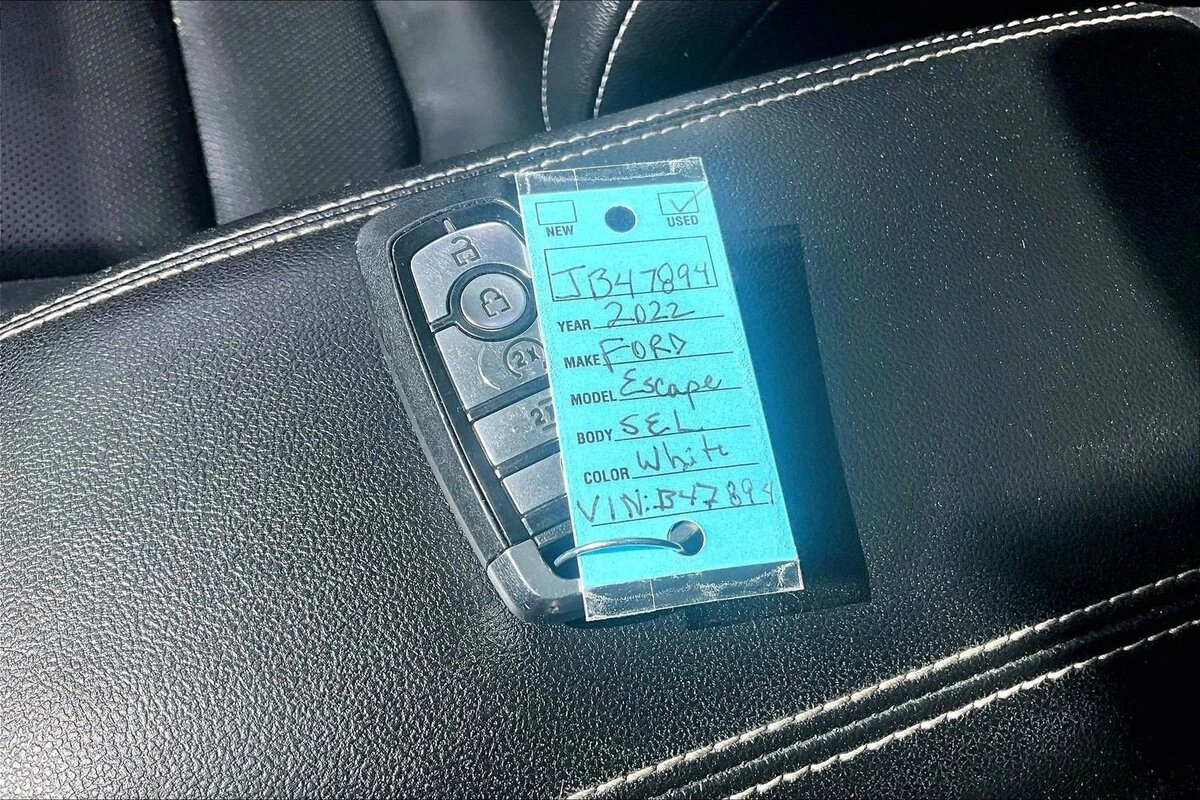 NEW USED
JB47894
YEAR 2022
MAKE FORD
MODEL Escape
BODY SEL
COLOR White
VIN: B47894
2x